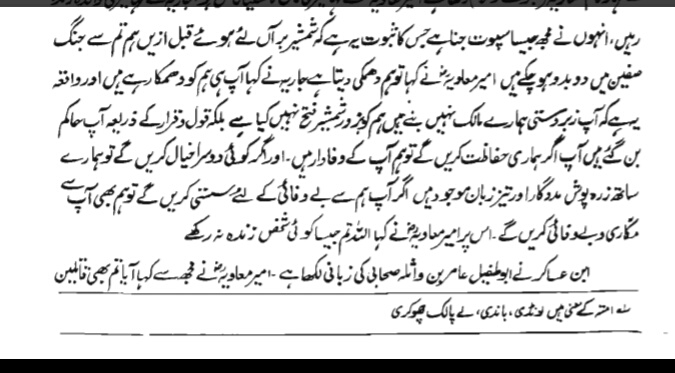 رہیں، انہوں نے مجھ جیسا سپوت جنا ہے جس کا ثبوت یہ ہے کہ شمشیر براں لئے ہوئے قبل ازیں ہم تم سے جنگ
صفین میں دو بدو ہو چکے ہیں امیر معاویہؓ نے کہا تو ہم دھمکی دیتا ہے جاریہ نے کہا آپ ہی ہم کو دھمکا رہے ہیں اور واقعہ
یہ ہے کہ آپ زبردستی ہمارے مالک نہیں بنے ہیں ہم کو بزور شمشیر فتح نہیں کیا ہے بلکہ قول و قرار کے ذریعہ آپ حاکم
بن گئے ہیں آپ اگر ہماری حفاظت کریں گے تو ہم آپ کے وفادار ہیں۔ اور اگر کوئی دوسرا خیال کریں گے تو ہمارے
ساتھ زرہ پوش مددگار اور تیز زبان موجود ہیں اگر آپ ہم سے بے وفائی کے لئے سستی کریں گے تو ہم بھی آپ سے
مکاری و بے وفائی کریں گے۔ اس پر امیر معاویہؓ نے کہا اللہ تم جیسا کوئی شخص زندہ نہ رکھے
ابن عساکر نے ابو طفیل عامر بن واثلہ صحابی کی زبانی لکھا ہے۔ امیر معاویہؓ نے مجھ سے کہا آیا تم بھی قاتلین
لہ امتہ کے معنی ہیں لونڈی، باندی، لے پالک چھوکری